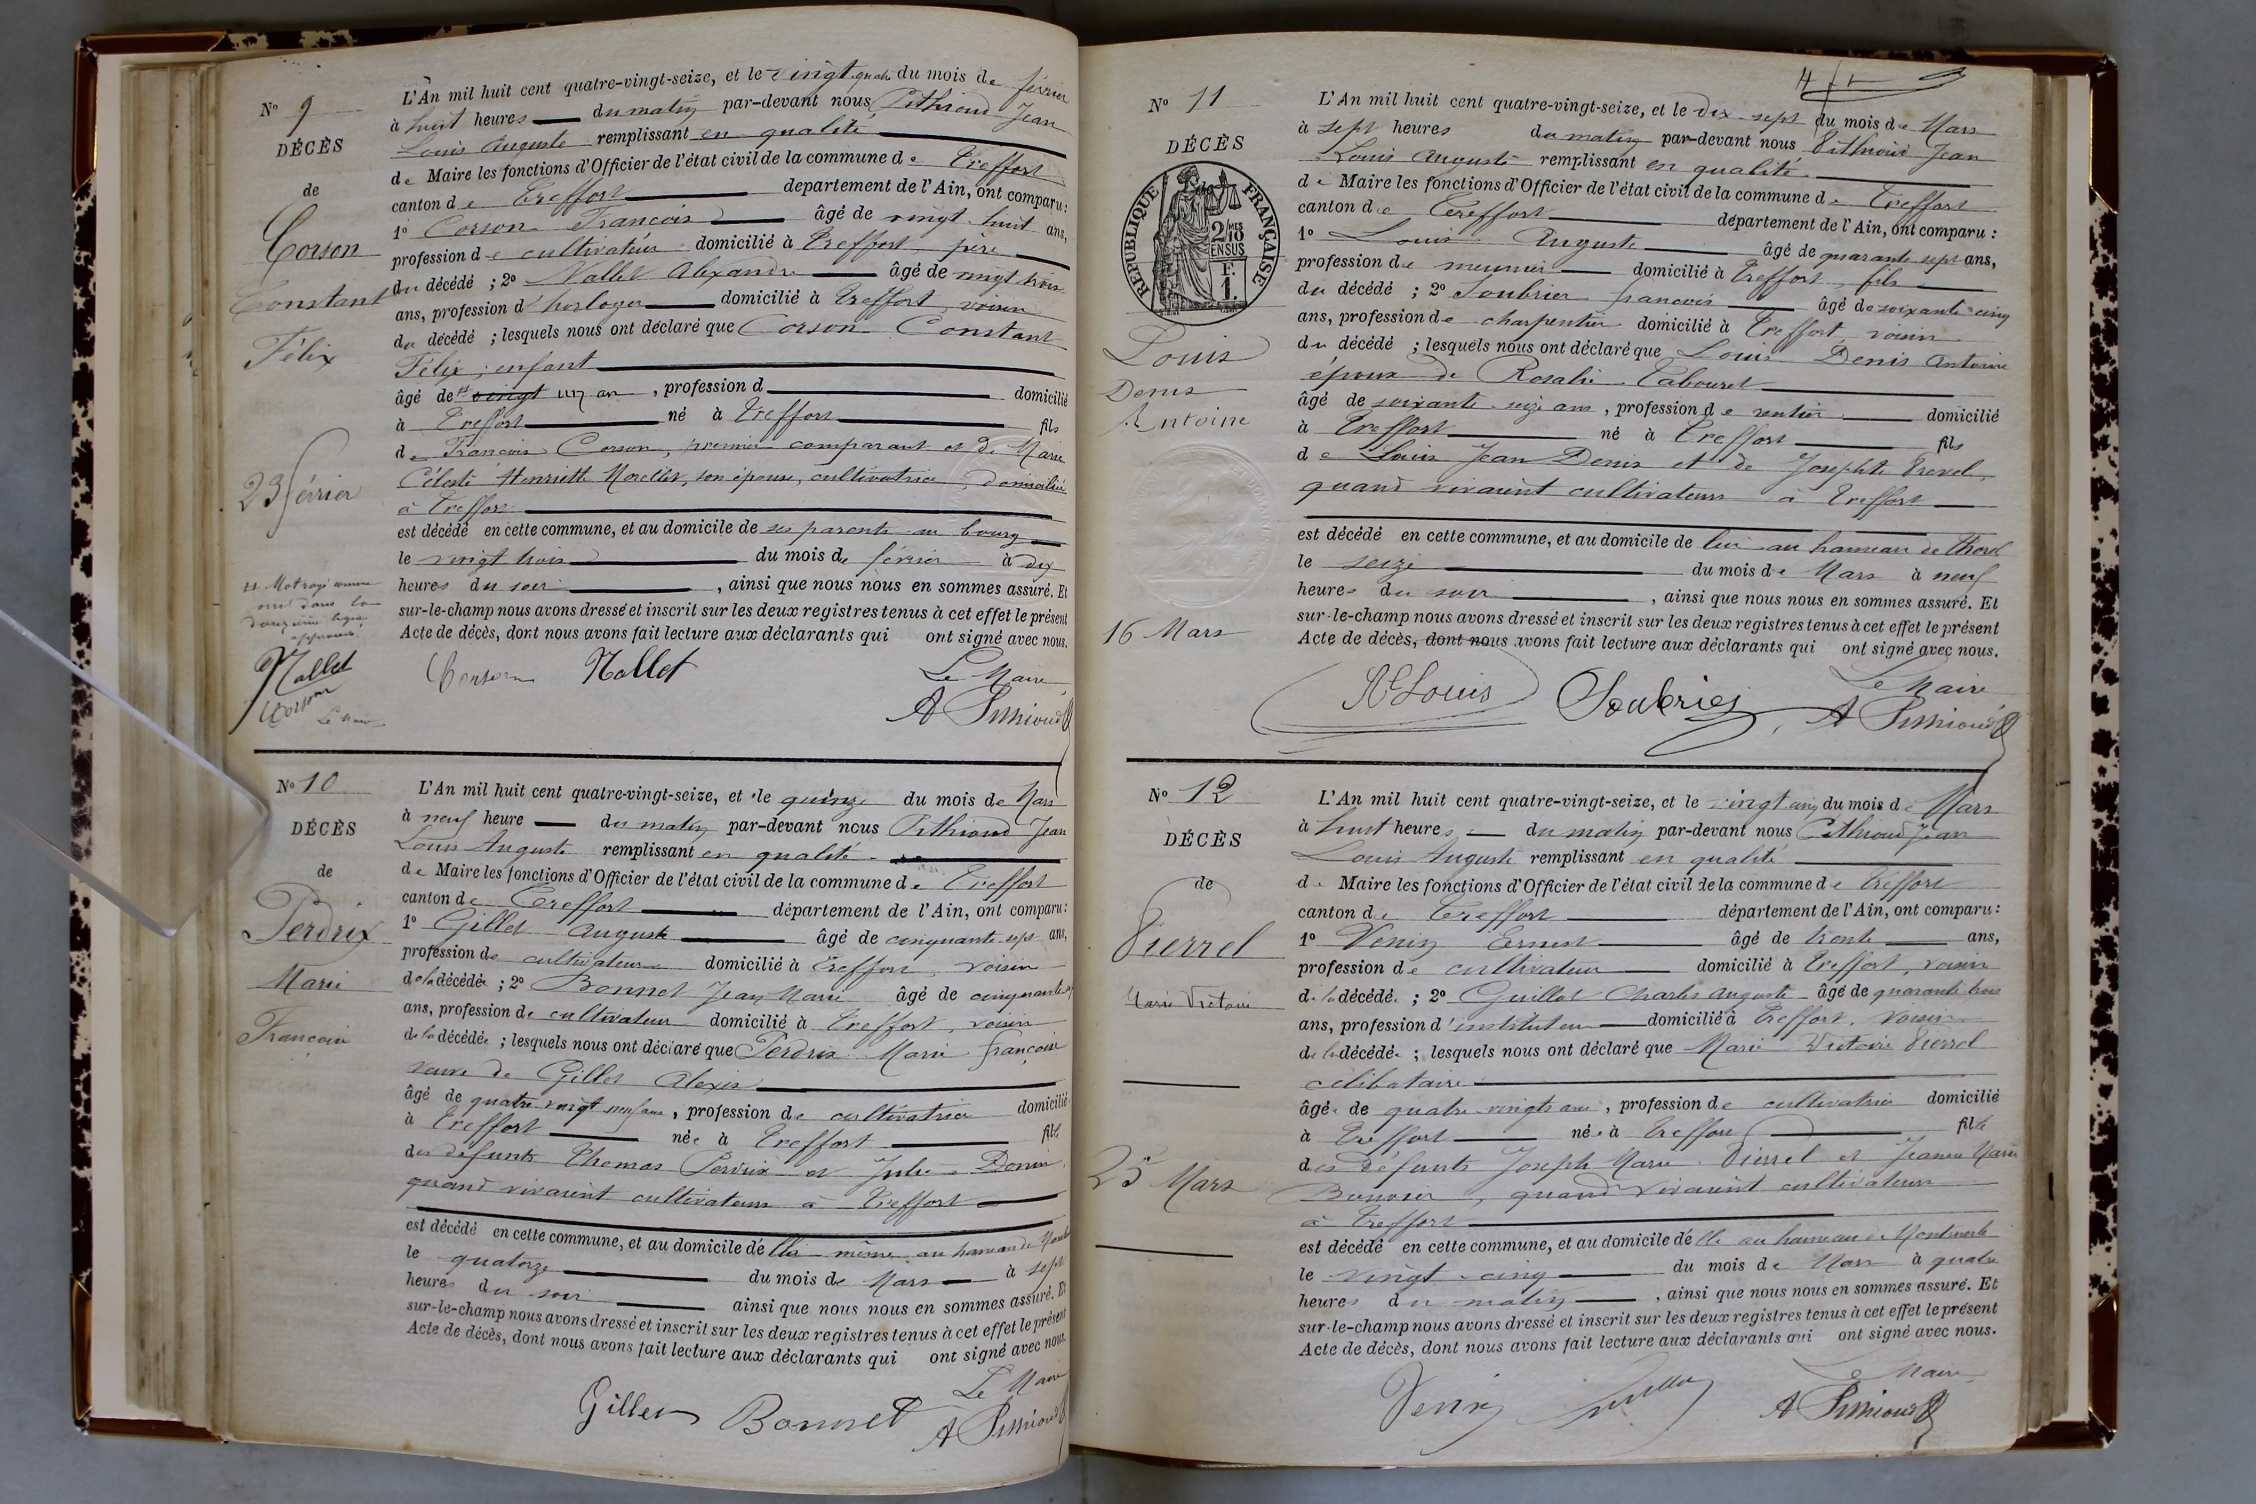 N° 9
DÉCÈS
de
Corson
Constant
Félix
23 février
Mot rayé comme
nul dans la
douzième ligne
approuvé
Nallet
Corson
Le Maire
L'An mil huit cent quatre-vingt-seize, et le vingt quatre du mois de février
à huit heures du matin par-devant nous Pithioud Jean
Louis Auguste remplissant en qualité
de Maire les fonctions d'Officier de l'état civil de la commune de Treffort
canton de Treffort departement de l'Ain, ont comparu :
1° Corson François âgé de vingt huit ans,
profession de cultivateur domicilié à Treffort père
du décédé ; 2° Nallet Alexandre âgé de vingt trois
ans, profession d'horloger domicilié à Treffort, voisin
du décédé ; lesquels nous ont déclaré que Corson Constant
Félix, enfant
âgé de vingt un an, profession d domicilié
à Treffort né à Treffort fils
de François Corson, premier comparant et de Marie
Céleste Henriette Morellet, son épouse, cultivatrice, domiciliée
à Treffort
est décédé en cette commune, et au domicile de ses parents au bourg
le vingt trois du mois de février à dix
heures du soir, ainsi que nous nous en sommes assuré. Et
sur-le-champ nous avons dressé et inscrit sur les deux registres tenus à cet effet le présent
Acte de décès, dont nous avons fait lecture aux déclarants qui ont signé avec nous.
Corson Nallet Le Maire
A Pithioud
N° 10
DÉCÈS
de
Perdrix
Marie
Françoise
L'An mil huit cent quatre-vingt-seize, et le quinze du mois de Mars
à neuf heure du matin par-devant nous Pithioud Jean
Louis Auguste remplissant en qualité
de Maire les fonctions d'Officier de l'état civil de la commune de Treffort
canton de Treffort département de l'Ain, ont comparu :
1° Gillet Auguste âgé de cinquante sept ans,
profession de cultivateur domicilié à Treffort, voisin
de la décédée ; 2° Bonnet Jean Marie âgé de cinquante
ans, profession de cultivateur domicilié à Treffort, voisin
de la décédée ; lesquels nous ont déclaré que Perdrix Marie françoise
veuve de Gillet Alexis
âgé de quatre vingt neuf ans, profession de cultivatrice domicilié
à Treffort née à Treffort fille
des défunts Thomas Perdrix et Julie Donin,
quand vivaient cultivateurs à Treffort
est décédé en cette commune, et au domicile d'elle même au hameau de
le quatorze du mois de Mars à sept
heures du soir ainsi que nous nous en sommes assuré. Et
sur-le-champ nous avons dressé et inscrit sur les deux registres tenus à cet effet le présent
Acte de décès, dont nous avons fait lecture aux déclarants qui ont signé avec nous.
Gillet Bonnet Le Maire
A Pithioud
N° 11
DÉCÈS
RÉPUBLIQUE FRANÇAISE
2/10 MES
EN SUS
F.
1.
Louis
Denis
Antoine
16 Mars
L'An mil huit cent quatre-vingt-seize, et le dix-sept du mois de Mars
à sept heures du matin par-devant nous Pithioud Jean
Louis Auguste remplissant en qualité
de Maire les fonctions d'Officier de l'état civil de la commune de Treffort
canton de Treffort département de l'Ain, ont comparu :
1° Louis Auguste âgé de quarante sept ans,
profession de meunier domicilié à Treffort, fils
du décédé ; 2° Soubrier françois âgé de soixante cinq
ans, profession de charpentier domicilié à Treffort, voisin
du décédé ; lesquels nous ont déclaré que Louis Denis Antoine
époux de Rosalie Tabouret
âgé de soixante seize ans, profession de rentier domicilié
à Treffort né à Treffort fils
de Louis Jean Denis et de Josephte
quand vivaient cultivateurs à Treffort
est décédé en cette commune, et au domicile de lui au hameau de
le seize du mois de Mars à neuf
heures du soir, ainsi que nous nous en sommes assuré. Et
sur-le-champ nous avons dressé et inscrit sur les deux registres tenus à cet effet le présent
Acte de décès, dont nous avons fait lecture aux déclarants qui ont signé avec nous.
Louis Soubrier Le Maire
A Pithioud
N° 12
DÉCÈS
de
Pierrel
Marie Victoire
25 Mars
L'An mil huit cent quatre-vingt-seize, et le vingt cinq du mois de Mars
à huit heures du matin par-devant nous Pithioud Jean
Louis Auguste remplissant en qualité
de Maire les fonctions d'Officier de l'état civil de la commune de Treffort
canton de Treffort département de l'Ain, ont comparu :
1° Venin Ernest âgé de trente ans,
profession de cultivateur domicilié à Treffort, voisin
de la décédée ; 2° Guillot Charles Auguste âgé de quarante trois
ans, profession d'instituteur domicilié à Treffort, voisin
de la décédée ; lesquels nous ont déclaré que Marie Victoire Pierrel
célibataire
âgée de quatre vingts ans, profession de cultivatrice domicilié
à Treffort née à Treffort fille
des défunts Joseph Marie Pierrel et Jeanne Marie
Bouvier, quand vivaient cultivateurs
à Treffort
est décédé en cette commune, et au domicile d'elle au hameau de
le vingt-cinq du mois de Mars à quatre
heures du matin, ainsi que nous nous en sommes assuré. Et
sur-le-champ nous avons dressé et inscrit sur les deux registres tenus à cet effet le présent
Acte de décès, dont nous avons fait lecture aux déclarants qui ont signé avec nous.
Venin Guillot Le Maire,
A Pithioud